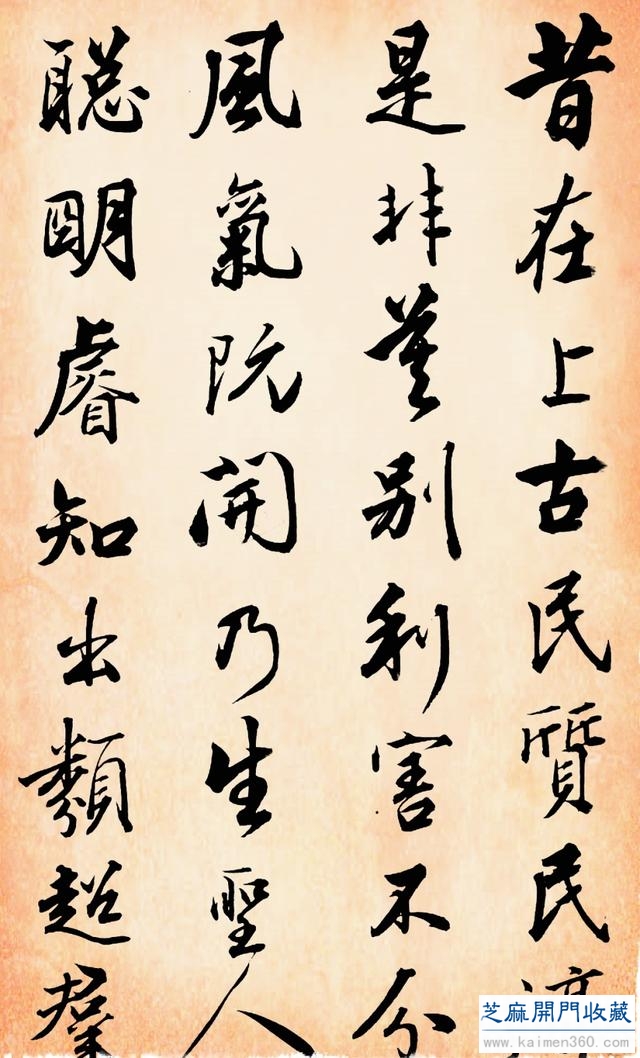 昔在上古民質民
是非莫別利害不分
風氣既開乃生聖人
聰明睿知出類超羣
芝麻開門收藏
www.kaimen360.com